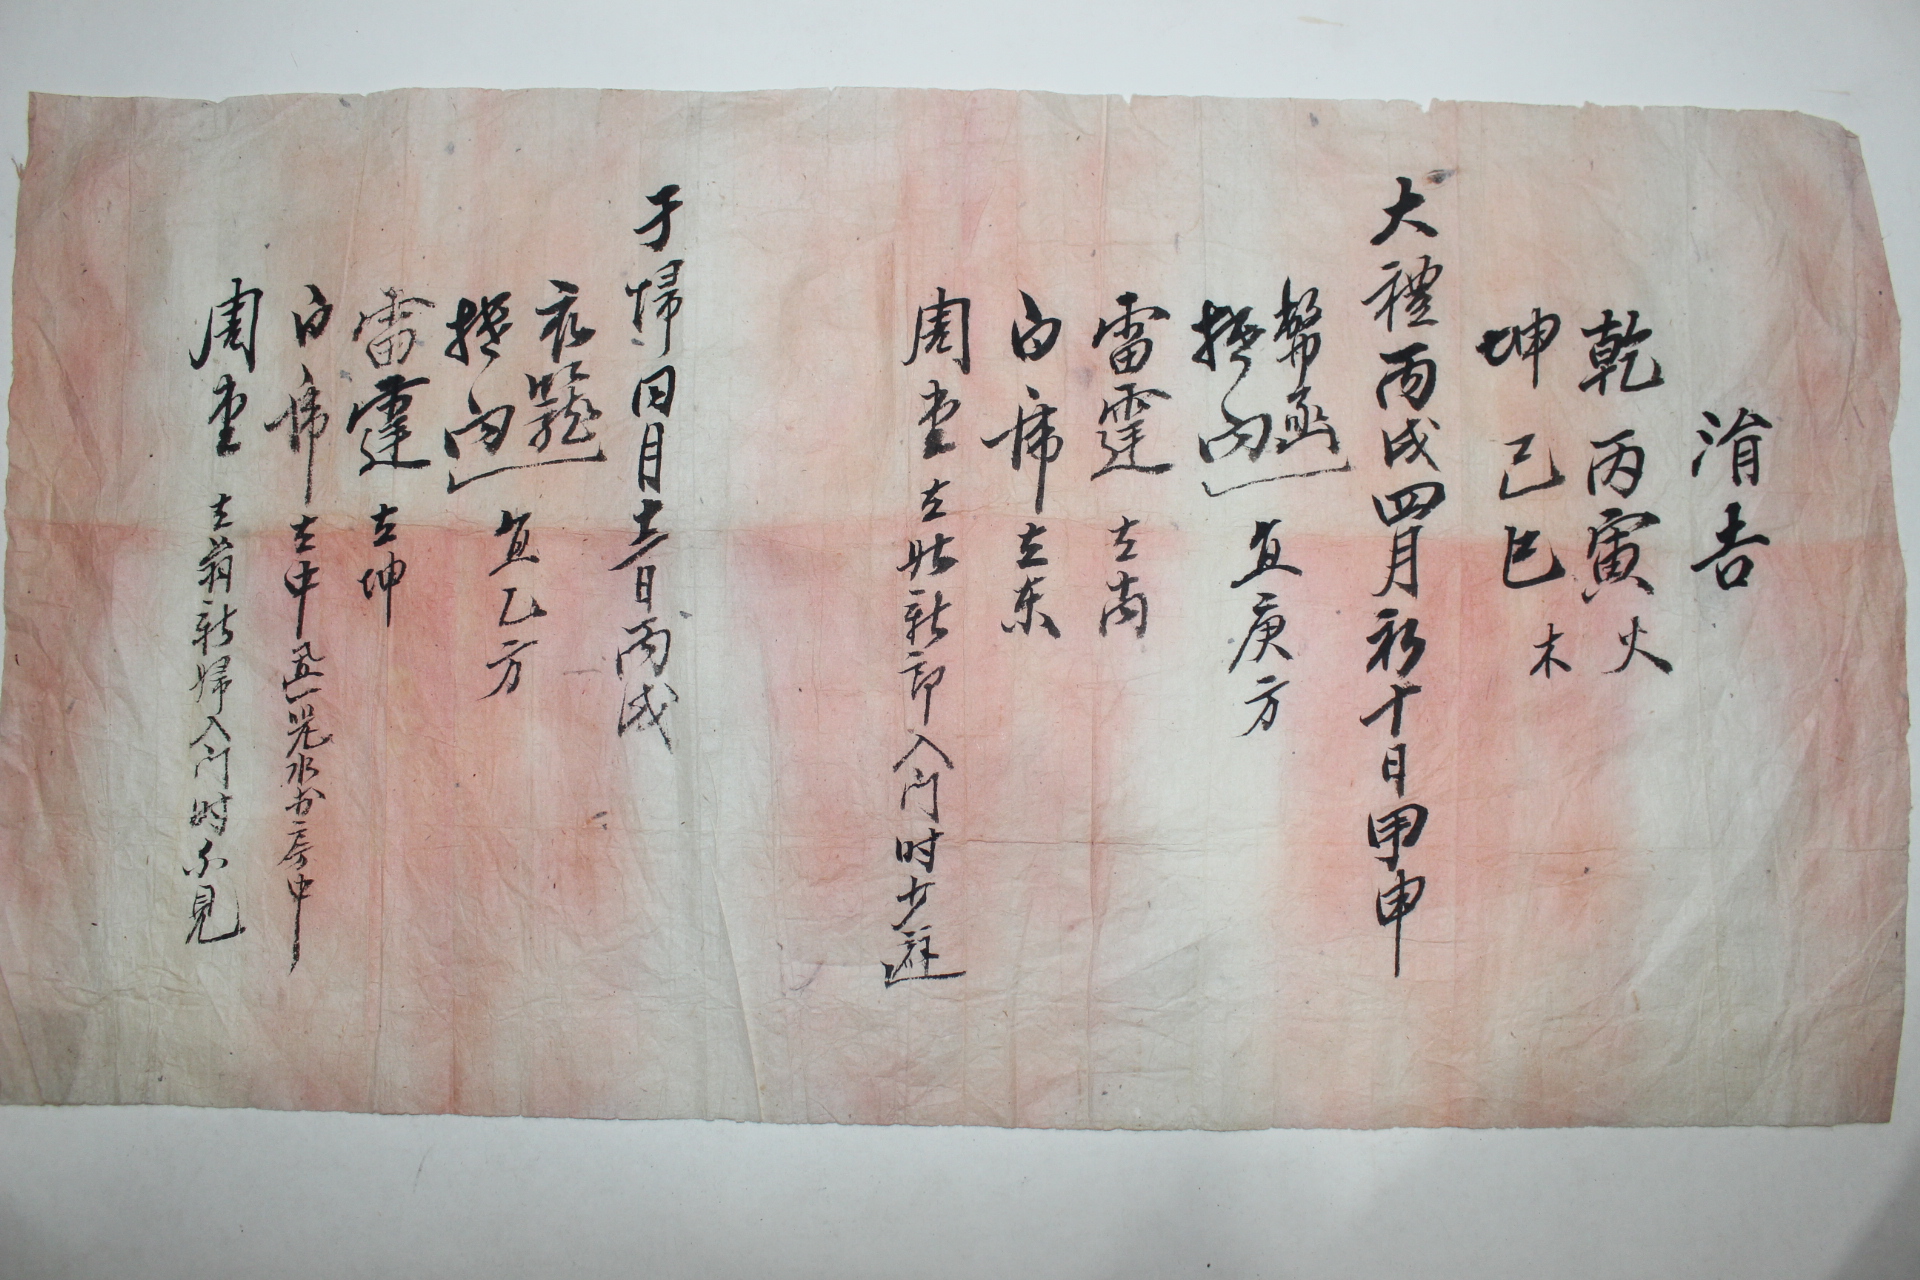 涓吉
乾 丙寅 火
坤 己巳 木
大禮丙戌四月初十日甲申
幣函
宜庚方
雷霆 在南
白乕 在东
周堂 在姑新郎入门时少避
于歸同月十二日丙戌
衣籠
宜乙方
雷霆 在坤
白乕 在中 水 房中
周堂 在翁新婦入门时不見